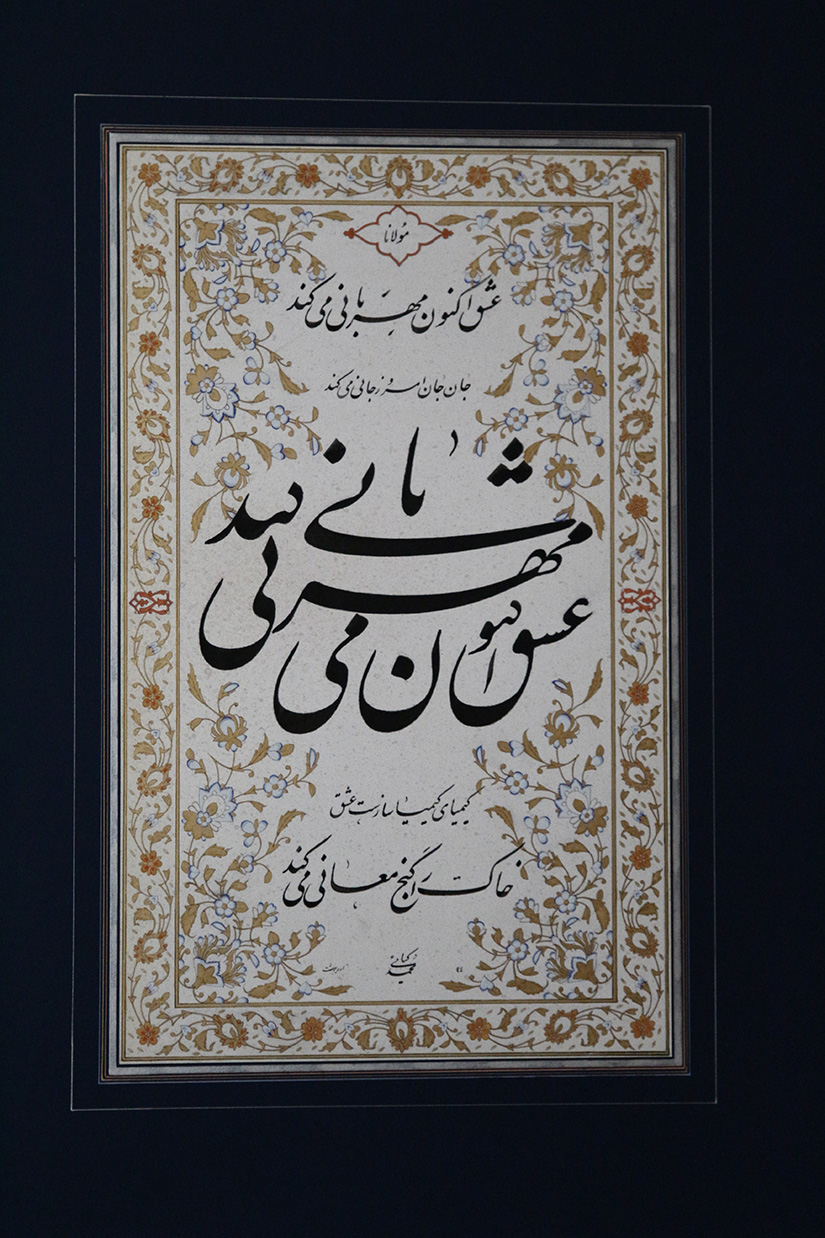 مولانا
عشق اکنون مهربانی می کند
جان جان امروز جانی می کند
عشق اکنون مهربانی می کند
کیمیای کیمیا سازست عشق
خاک را گنج معانی می کند